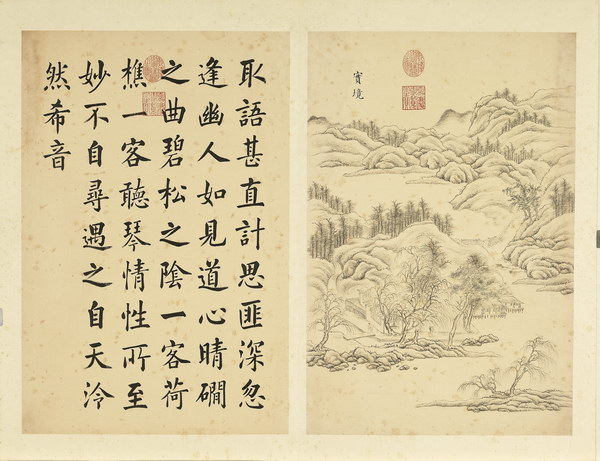 實境
取語甚直計思匪深忽
逢幽人如見道心晴磵
之曲碧松之陰一客荷
樵一客聽琴情性所至
妙不自尋遇之自天泠
然希音